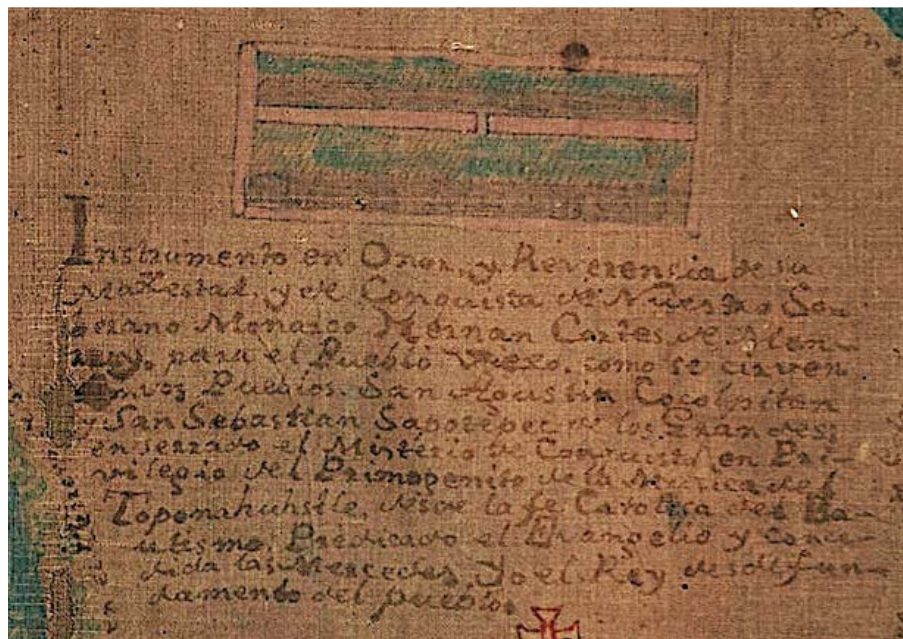 Instrumento en Onor, y, Reverensia, de su
Maxestad, y de Conquista de Nuestro So-
berano Monarco Hernan Cortes de Mon-
para el Pueblo Viexo, como se cirven
Pueblos San Agustin Cocolpitan
y San Sebastian Sapotepec de los Grandes,
enserrado el Misterio de Conquista en Pri-
vilegio del Primogenito de la Musica del
Toponahuhstle, desde la fe Catolica del Ba-
utismo, Predicado el Evangelio y conce-
dida las Mercedes, Yo el Rey desde fun-
damento del pueblo.